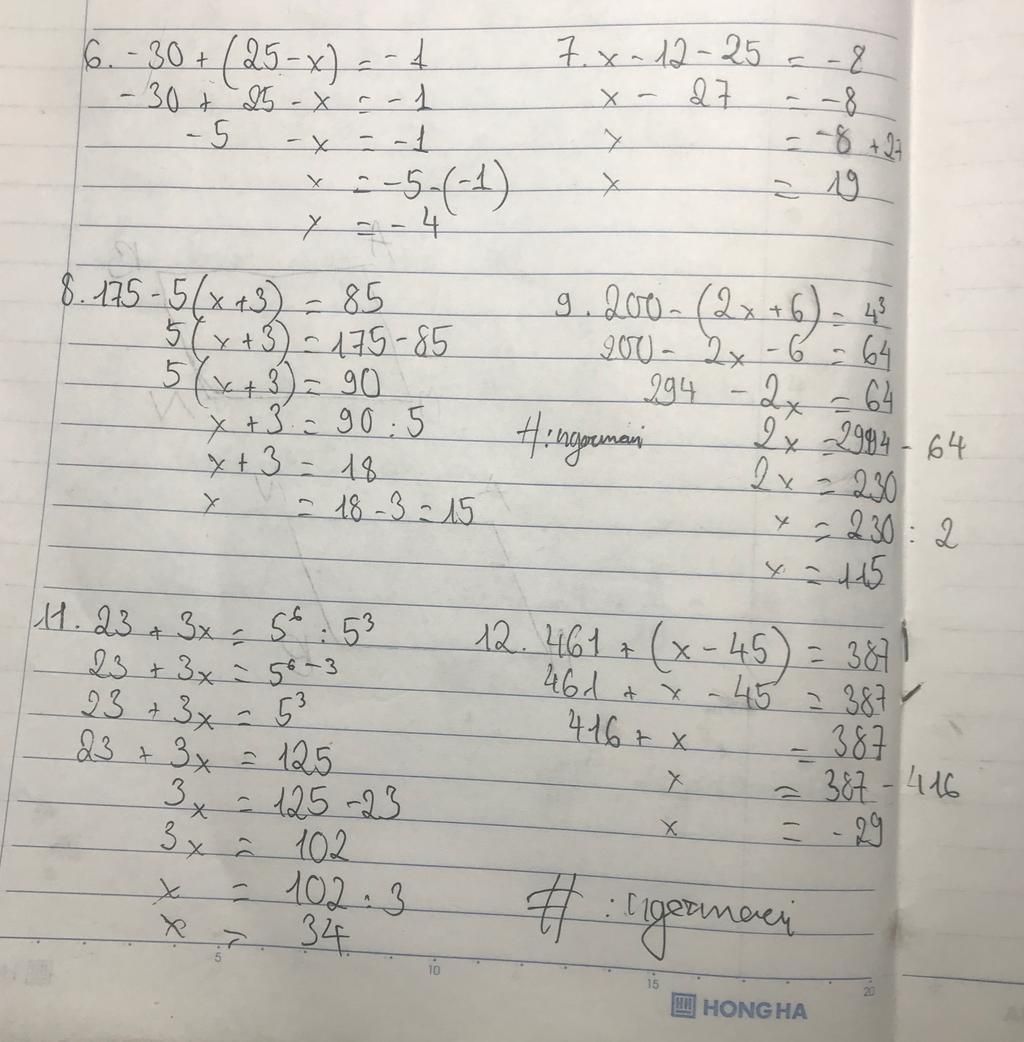 6. -30 + (25 - x) = -1
-30 + 25 - x = -1
-5 - x = -1
x = -5 - (-1)
x = -4
7. x - 12 - 25 = -8
x - 27 = -8
x = -8 + 27
x = 19
8. 175 - 5(x + 3) = 85
5(x + 3) = 175 - 85
5(x + 3) = 90
x + 3 = 90 : 5
x + 3 = 18
x = 18 - 3 = 15
9. 200 - (2x + 6) = 4³
200 - 2x - 6 = 64
294 - 2x = 64
2x = 294 - 64
2x = 230
x = 230 : 2
x = 115
#: ngocmai
11. 23 + 3x = 5⁶ : 5³
23 + 3x = 5⁶⁻³
23 + 3x = 5³
23 + 3x = 125
3x = 125 - 23
3x = 102
x = 102 : 3
x = 34
12. 461 + (x - 45) = 387
461 + x - 45 = 387
416 + x = 387
x = 387 - 416
x = -29
# : ngocmai
5 10 15 20
HONG HA